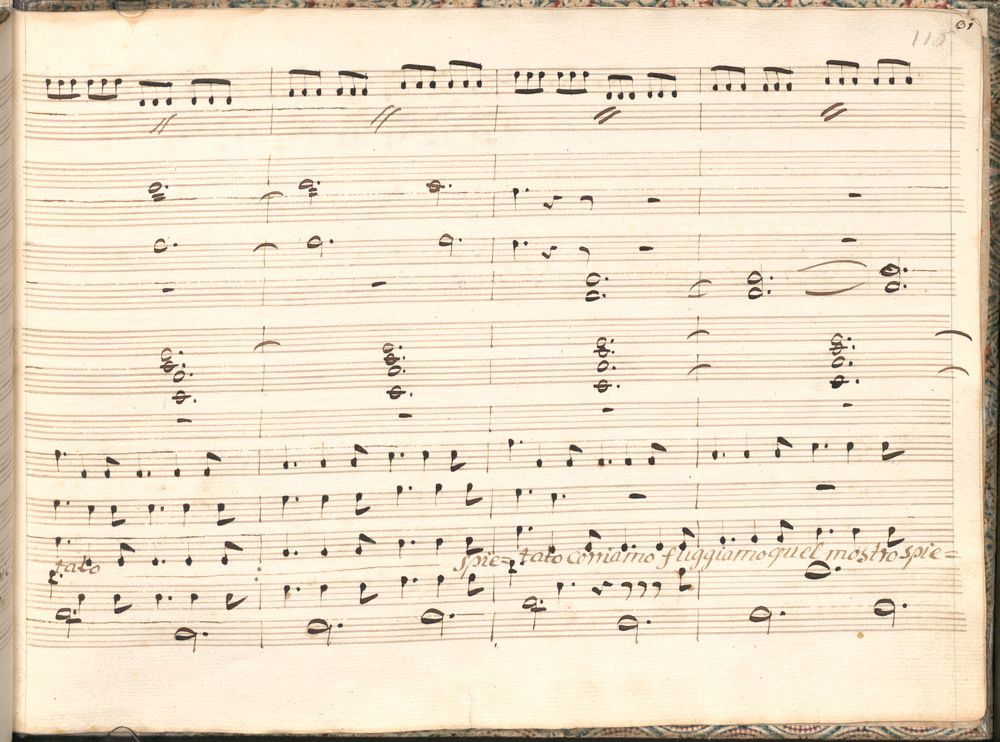 115
31
tato spie= tato corriamo fuggiamo quel mostro spie=